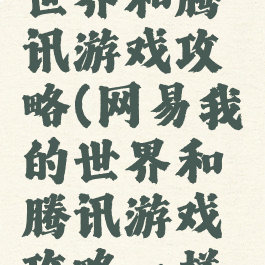 世界和腾
讯游戏攻
略(网易我
的世界和
腾讯游戏
攻略